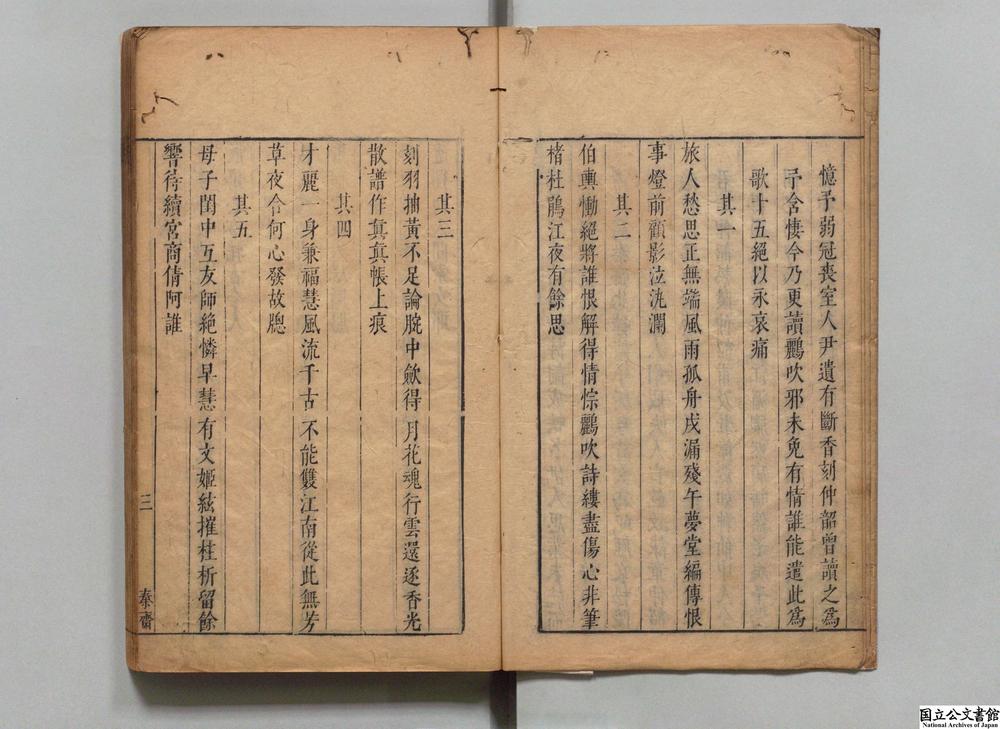 憶予弱冠喪室人尹遺有斷香刻仲韶曾讀之爲
予含悽今乃更讀鸝吹邪未免有情誰能遣此爲
歌十五絕以永哀痛
其一
旅人愁思正無端風雨孤舟戍漏殘午夢堂編傳恨
事燈前顧影泣汍瀾
其二
伯輿慟絕將誰恨解得情悰鸝吹詩縷盡傷心非筆
楮杜鵑江夜有餘思
其三
刻羽抽黃不足論腕中斂得月花魂行雲還逐香光
散譜作眞眞帳上痕
其四
才麗一身兼福慧風流千古不能雙江南從此無芳
草夜令何心發故牕
其五
母子閨中互友師絕憐早慧有文姬絃摧桂析留餘
響待續宮商倩阿誰
三
泰齋
国立公文書館
National Archives of Japan